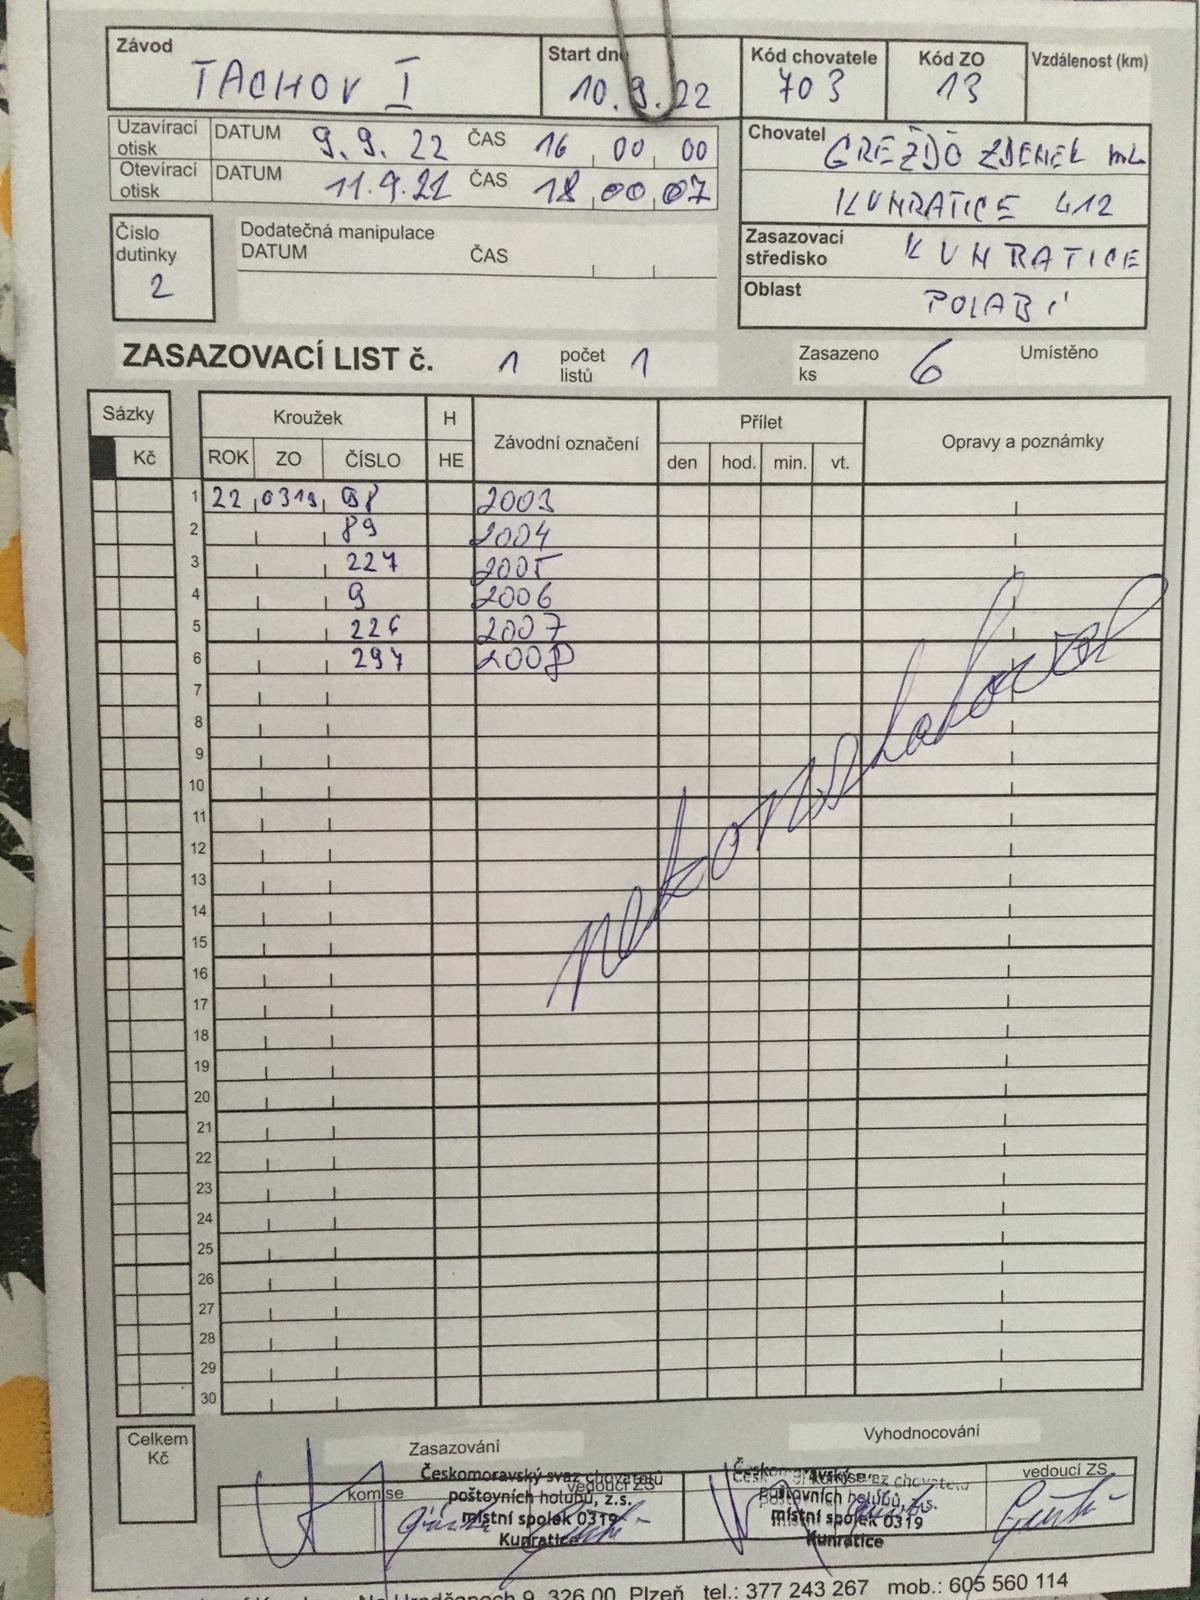 Závod TACHOV I Start dne 10.9.22 Kód chovatele 703 Kód ZO 13 Vzdálenost (km)
Uzavírací otisk DATUM 9.9.22 ČAS 16 00 00
Otevírací otisk DATUM 11.9.22 ČAS 18 00 07
Chovatel GREŽĎO ZDENEK ML
KUNRATICE 412
Zasazovací středisko KUNRATICE
Oblast POLABÍ
Číslo dutinky 2
Dodatečná manipulace
DATUM ČAS
ZASAZOVACÍ LIST č. 1 počet listů 1 Zasazeno ks 6 Umístěno
Sázky Kroužek H Závodní označení Přílet Opravy a poznámky
Kč ROK ZO ČÍSLO HE den hod. min. vt.
1 22 0319 98 2003
2 89 2004
3 227 2005
4 9 2006
5 226 2007
6 297 2008
7
8
9
10
11
12
13
14
15
16
17
18
19
20
21
22
23
24
25
26
27
28
29
30
nekonstatoval
Celkem Kč
Zasazování Vyhodnocování
komise vedoucí ZS komise vedoucí ZS
Českomoravský svaz chovatelů
poštovních holubů, z.s.
místní spolek 0319
Kunratice
Českomoravský svaz chovatelů
poštovních holubů, z.s.
místní spolek 0319
Kunratice
9, 326 00 Plzeň tel.: 377 243 267 mob.: 605 560 114